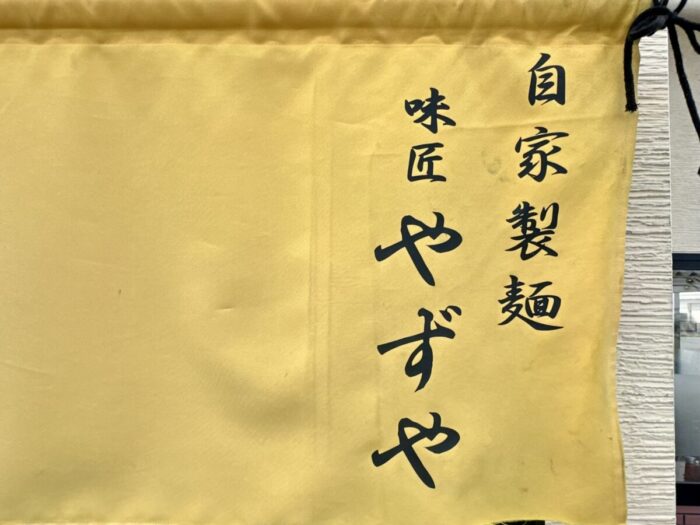 自家製麺
味匠
やずや